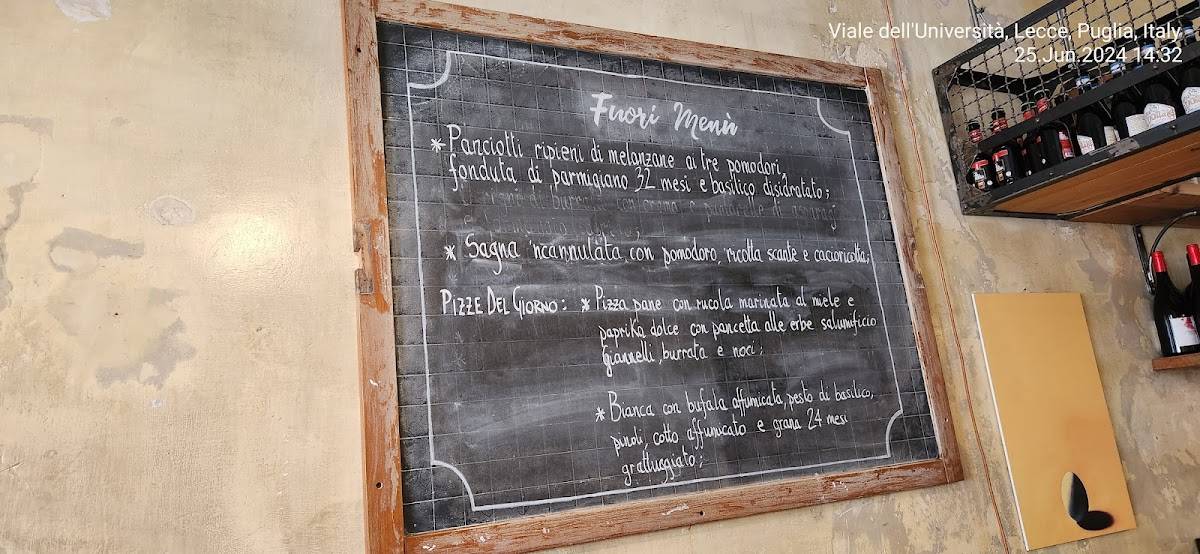 Viale dell'Università, Lecce, Puglia, Italy
25.Jun.2024 14:32
Fuori Menù
* Panciotti ripieni di melanzane ai tre pomodori,
fonduta di parmigiano 32 mesi e basilico disidratato;
* Sagna 'ncannulata con pomodoro, ricotta scante e cacioricotta;
PIZZE DEL GIORNO: * Pizza pane con rucola marinata al miele e
paprika dolce con pancetta alle erbe salumificio
Giannelli, burrata e noci;
* Bianca con bufala affumicata, pesto di basilico,
pinoli, cotto affumicato e grana 24 mesi
grattuggiato;